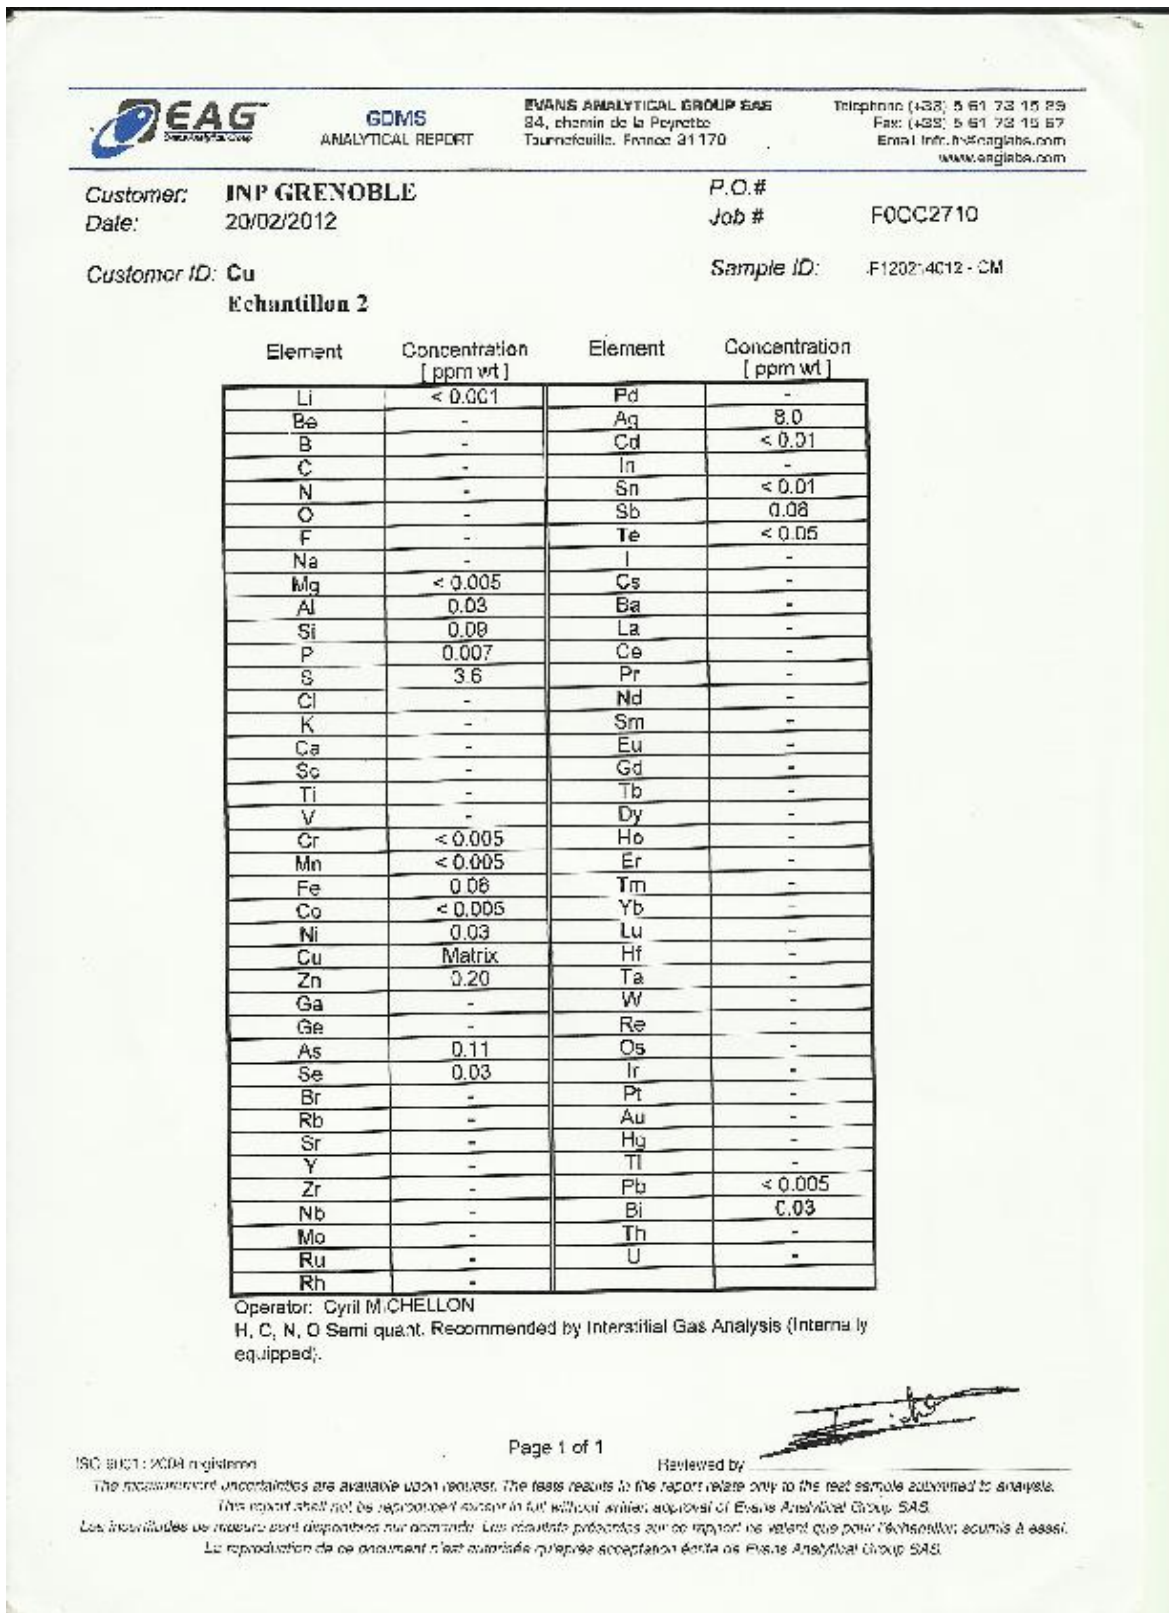 EAG
GDMS
ANALYTICAL REPORT
EVANS ANALYTICAL GROUP SAS
94, chemin de la Peyrette
Tournefeuille, France 31170
Telephone (+33) 5 61 73 15 29
Fax: (+33) 5 61 73 15 67
www.eaglabs.com
Customer: INP GRENOBLE
Date: 20/02/2012
P.O.#
Job # F0CC2710
Customer ID: Cu
Echantillon 2
Sample ID: - CM
Element Concentration Element Concentration
[ ppm wt ] [ ppm wt ]
Li < 0.001 Pd -
Be - Ag 8.0
B - Cd < 0.01
C - In -
N - Sn < 0.01
O - Sb 0.08
F - Te < 0.05
Na - I -
Mg < 0.005 Cs -
Al 0.03 Ba -
Si 0.09 La -
P 0.007 Ce -
S 3.6 Pr -
Cl - Nd -
K - Sm -
Ca - Eu -
Sc - Gd -
Ti - Tb -
V - Dy -
Cr < 0.005 Ho -
Mn < 0.005 Er -
Fe 0.08 Tm -
Co < 0.005 Yb -
Ni 0.03 Lu -
Cu Matrix Hf -
Zn 0.20 Ta -
Ga - W -
Ge - Re -
As 0.11 Os -
Se 0.03 Ir -
Br - Pt -
Rb - Au -
Sr - Hg -
Y - Tl -
Zr - Pb < 0.005
Nb - Bi 0.03
Mo - Th -
Ru - U -
Rh -
Operator: Cyril MICHELLON
H, C, N, O Semi quant. Recommended by Interstitial Gas Analysis (Internally
equipped).
Page 1 of 1
ISO 9001 : 2008 registered
Reviewed by
The measurement uncertainties are available upon request. The tests results in the report relate only to the test sample submitted to analysis.
This report shall not be reproduced except in full without written approval of Evans Analytical Group SAS.
Les incertitudes de mesure sont disponibles sur demande. Les résultats présentés sur ce rapport ne valent que pour l'échantillon soumis à essai.
La reproduction de ce document n'est autorisée qu'après acceptation écrite de Evans Analytical Group SAS.